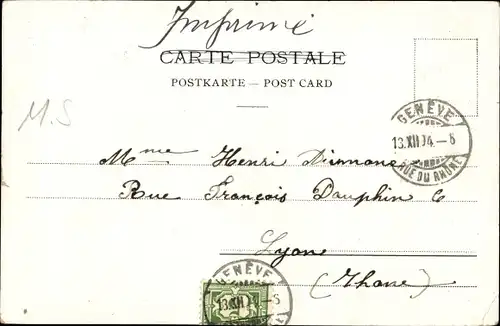 Imprimé
CARTE POSTALE
POSTKARTE — POST CARD
M.S
GENÈVE
13.XII 04.–8
RUE DU RHÔNE
Mme Henri
Rue François Dauphin 6
Lyone
(Rhone)
GENÈVE
13.XII 04.–8